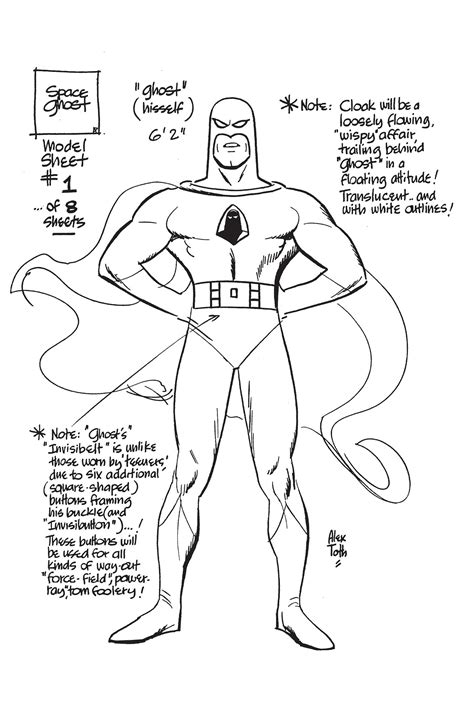 Space
Ghost
Model
Sheet
# 1
... of 8
sheets
"Ghost"
(hisself)
6'2"
* Note: Cloak will be a
loosely flowing,
"wispy" affair,
trailing behind
"Ghost" in a
floating attitude!
Translucent.. and
with white outlines!
* Note: "Ghost's"
"Invisibelt" is unlike
those worn by 'teeners',
due to six additional
(square-shaped)
buttons framing
his buckle (and
"Invisibutton")...!
These buttons will
be used for all
kinds of way-out
"force-field", power-
ray, tom foolery!
Alex
Toth